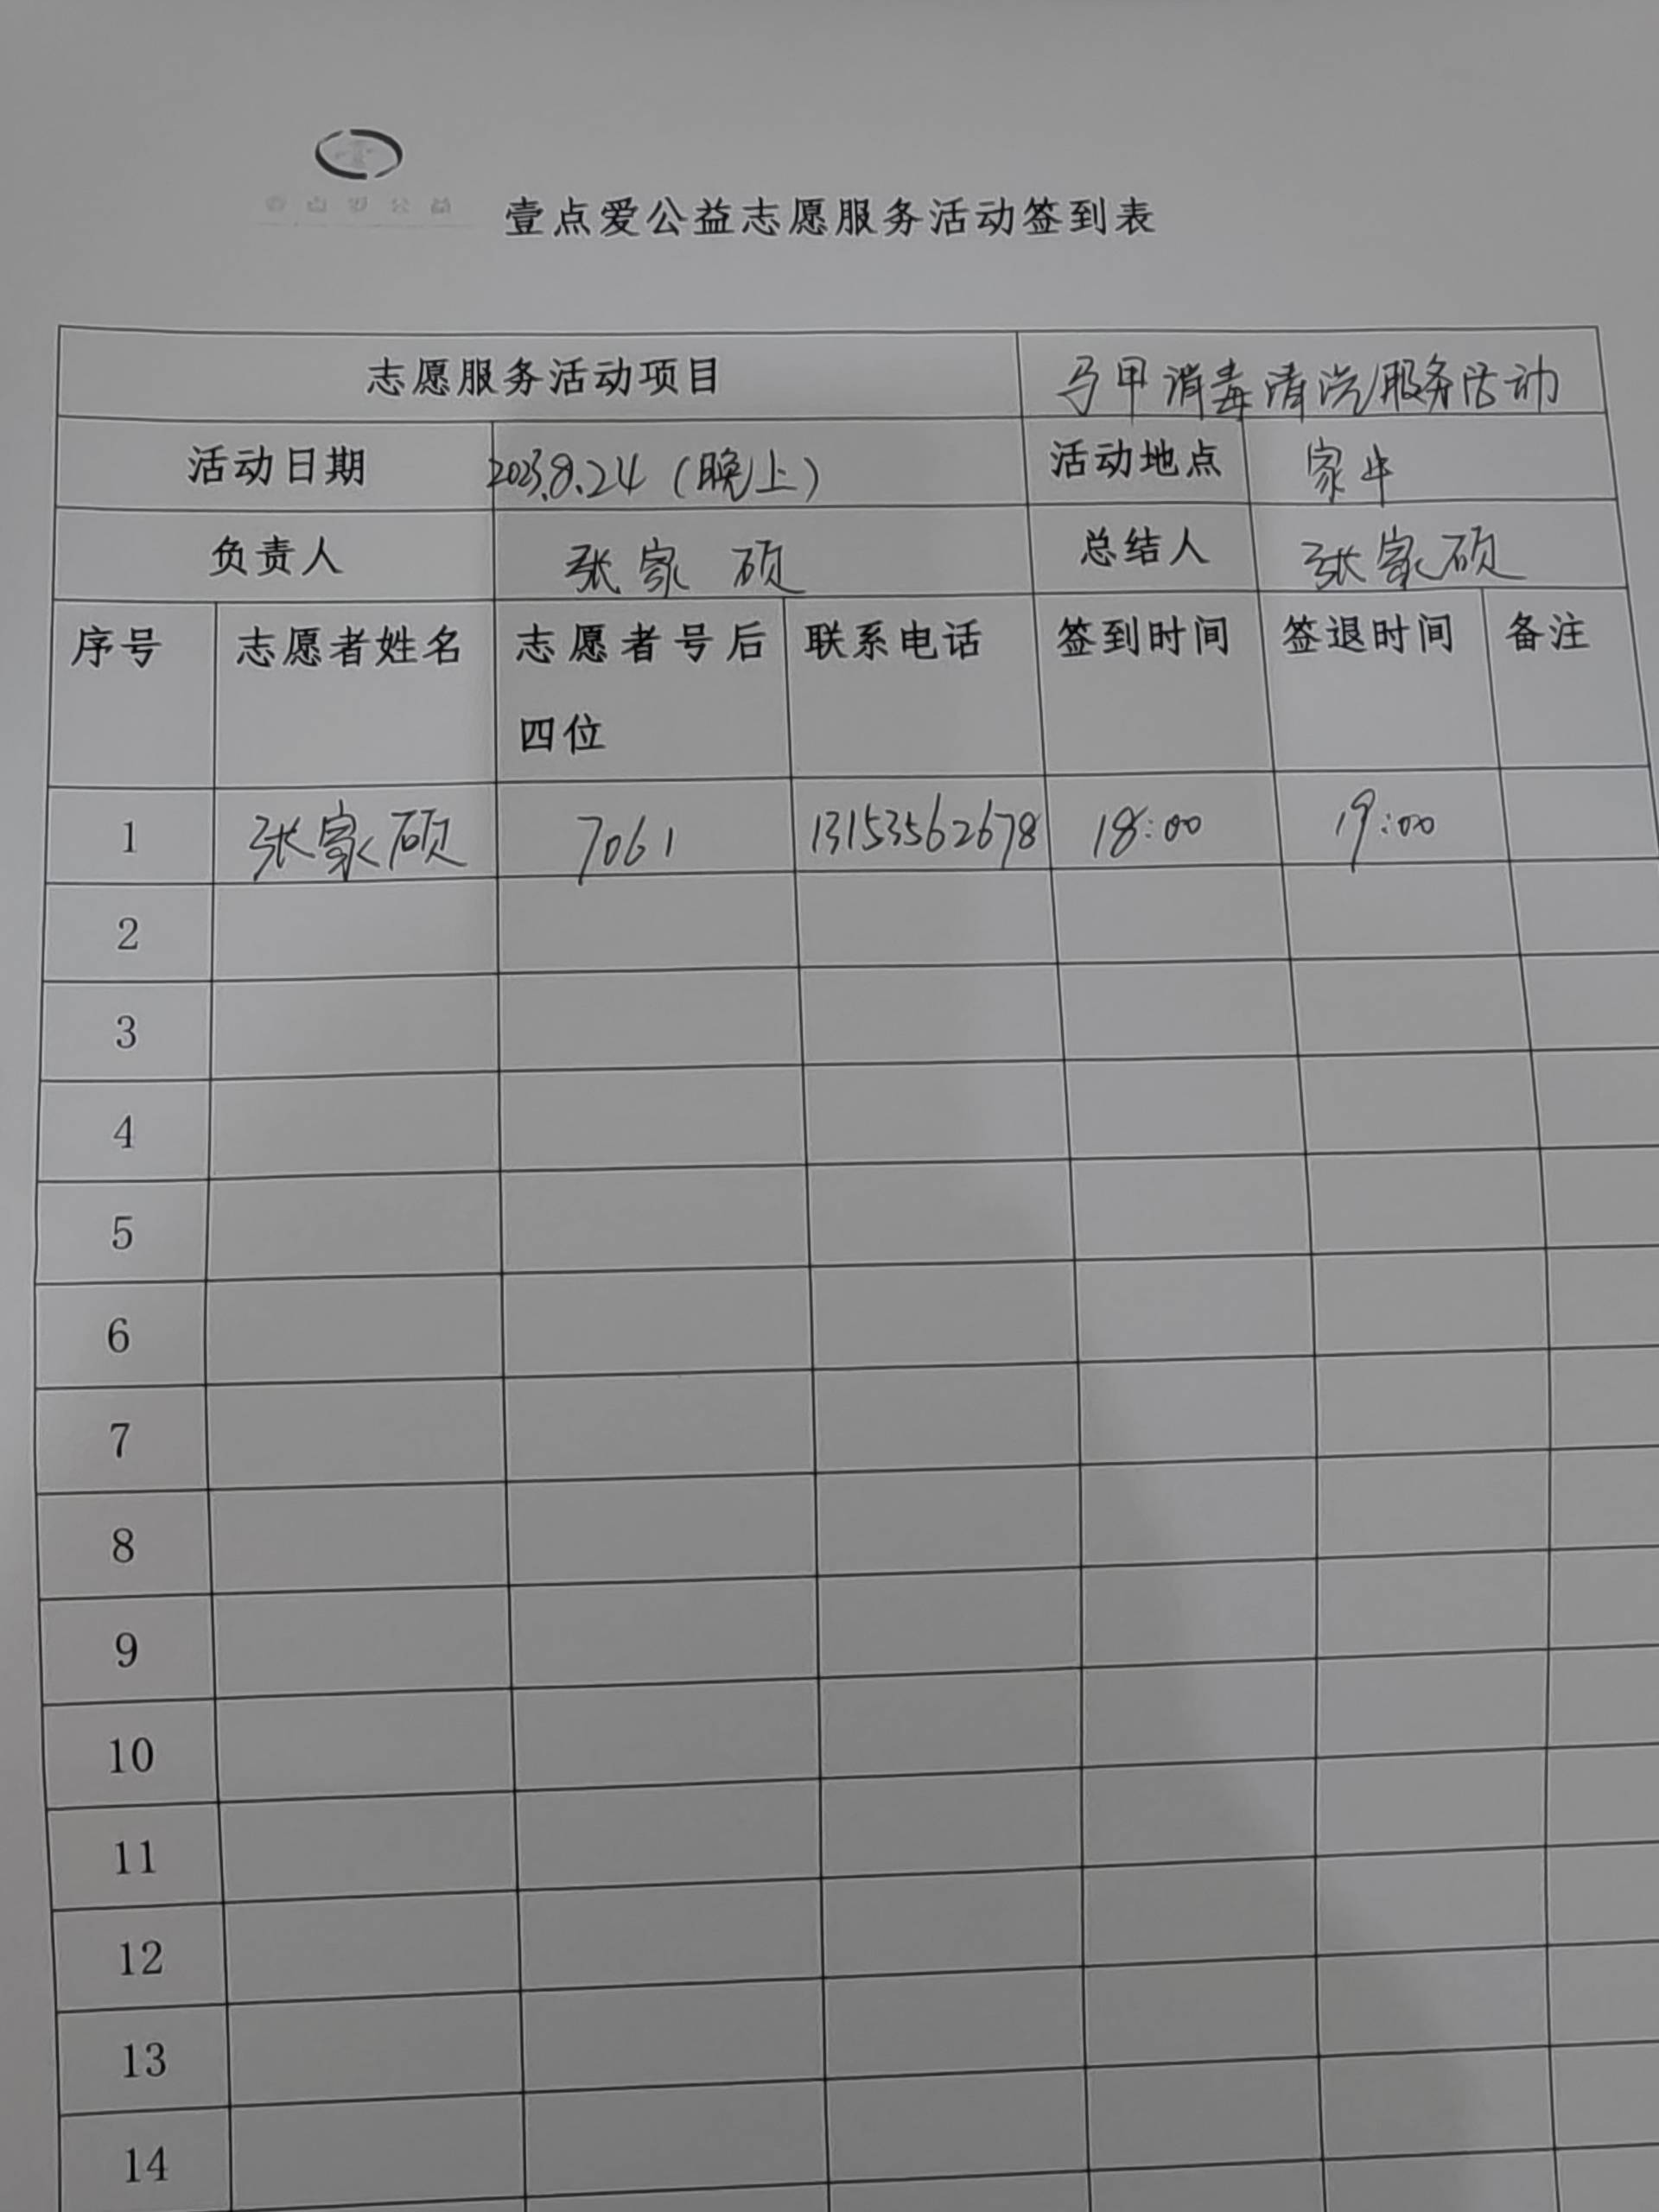 壹点爱公益
壹点爱公益志愿服务活动签到表
志愿服务活动项目 马甲消毒清洗服务活动
活动日期 2023.8.24（晚上） 活动地点 家中
负责人 张家硕 总结人 张家硕
序号 志愿者姓名 志愿者号后四位 联系电话 签到时间 签退时间 备注
1 张家硕 7061 13153562678 18:00 19:00
2
3
4
5
6
7
8
9
10
11
12
13
14